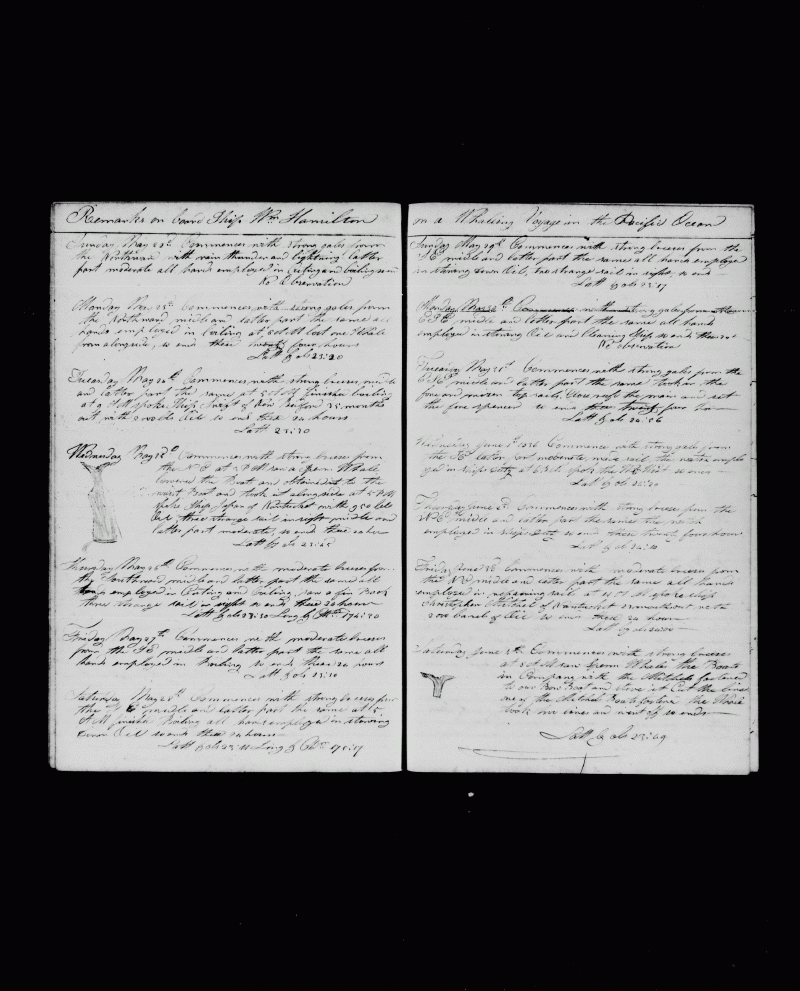 Remarks on board Ship Wm Hamilton
Sunday May 22d Commences with strong gales from
the Northward with rain thunder and lightning latter
part moderate all hands employed in Cuting and boiling so en
No Observation
Monday May 23d Commences with strong gales from
the Northward middle and latter part the same all
hands employed in boiling at 5 A M lost one Whale
from alongside so ends these twenty four hours
Latt by ob 23:20
Tuesday May 24th Commences with strong breeses middle
and latter part the same at 5 A M finished boiling
at 9 A M spoke Ship of New Bedford months
out with Oil so ends these 24 hours
Latt 23:30
Wednesday May 25th Commences with strong breeses from
the N E at 3 P M saw a Sperm Whale
lowered the Boats and to the
Boat and took it alongside at 5 P M
spoke Ship of Nantucket with 950 bbls
Oil three strange sail in sight middle and
latter part moderate so ends these
Latt by ob 23:25
Thursday May 26th Commences with moderate breeses from
the Southward middle and latter part the same all
employed in Cuting and boiling saw a fin Back
three strange sail in sight so ends these 24 hours
Latt by ob 23:20 Long by 174:30
Friday May 27th Commences with moderate breeses
from the S E middle and latter part the same all
hands employed in Boiling so ends these 24 hours
Latt by ob 23:10
Saturday May 28th Commences with strong breeses from
the S E middle and latter part the same at 5
A M finished Boiling all hands employed in stowing
down Oil so ends these 24 hours
Latt by ob 23:10 Long by 175:17
on a Whaleing Voyage in the Pacific Ocean
Sunday May 29th Commences with strong breeses from the
S E middle and latter part the same all hands employed
in stowing down Oil two strange sail in sight so ends
Latt by ob 23:17
Monday May 30th Commences with strong gales from
E S E middle and latter part the same all hands
employed in stowing Oil and Cleaning Ship so ends these 24
No observation
Tuesday May 31st Commences with strong gales from the
E S E middle and latter part the same took in the
fore and mizen top sails Close reeft the main and set
the fore spencer so ends these twenty four
Latt by ob 24:26
Wednesday June 1st 1836 Commences with strong gales from
the S E latter part moderate made sail the watch employ
ed in ships duty at 6 A M spoke the so ends
Latt by ob
Thursday June 2d Commences with strong breeses from the
N E middle and latter part the same the watch
employed in ships duty so ends these twenty four hours
Latt by ob 24:10
Friday June 3d Commences with moderate breeses from
the N E middle and latter part the same all hands
employed in repairing sail at A M spoke ship
Christopher Mitchell of Nantucket months out with
barels of Oil so ends these 24 hours
Latt by ob
Saturday June 4th Commences with strong breeses
at 5 A M saw Sperm Whales the Boats
in Company with the Mitchels fastened
to one Bow Boat and stove it Cut the line
one of the Mitchel Boats fastened the Whale
took line and went off so ends
Latt by ob 23:49